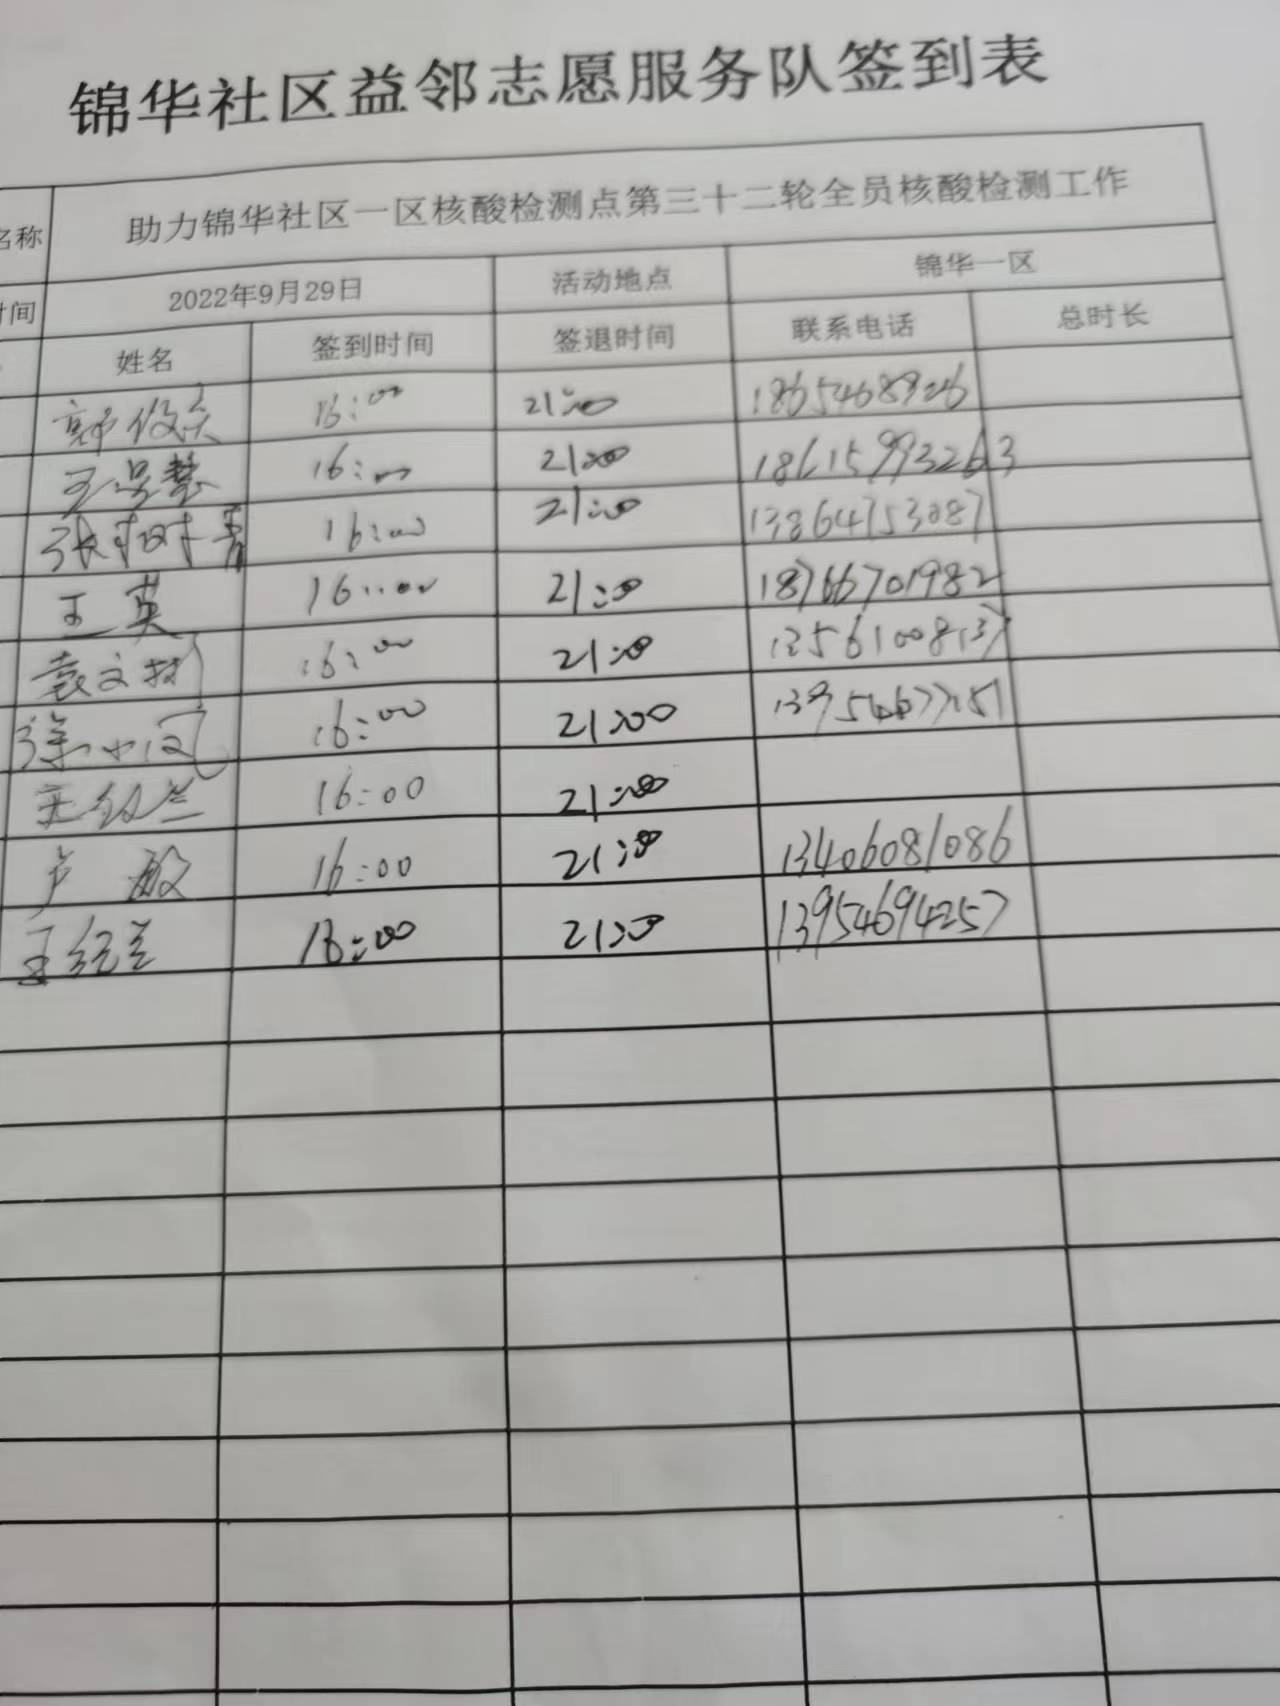 锦华社区益邻志愿服务队签到表
名称 助力锦华社区一区核酸检测点第三十二轮全员核酸检测工作
时间 2022年9月29日 活动地点 锦华一区
姓名 签到时间 签退时间 联系电话 总时长
16:00 21:00
16:00 21:00 18615993263
16:00 21:00 13864753087
王英 16:00 21:00 18766701982
袁文树 16:00 21:00 13561008137
徐小凤 16:00 21:00
16:00 21:00
卢敏 16:00 21:00 13406081086
王红兰 16:00 21:00 13954694257